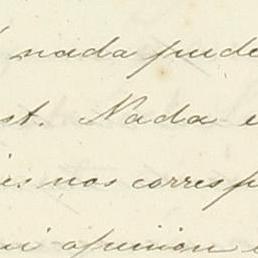 nada pude
st. Nada e
is nos corresp
mi opinion e